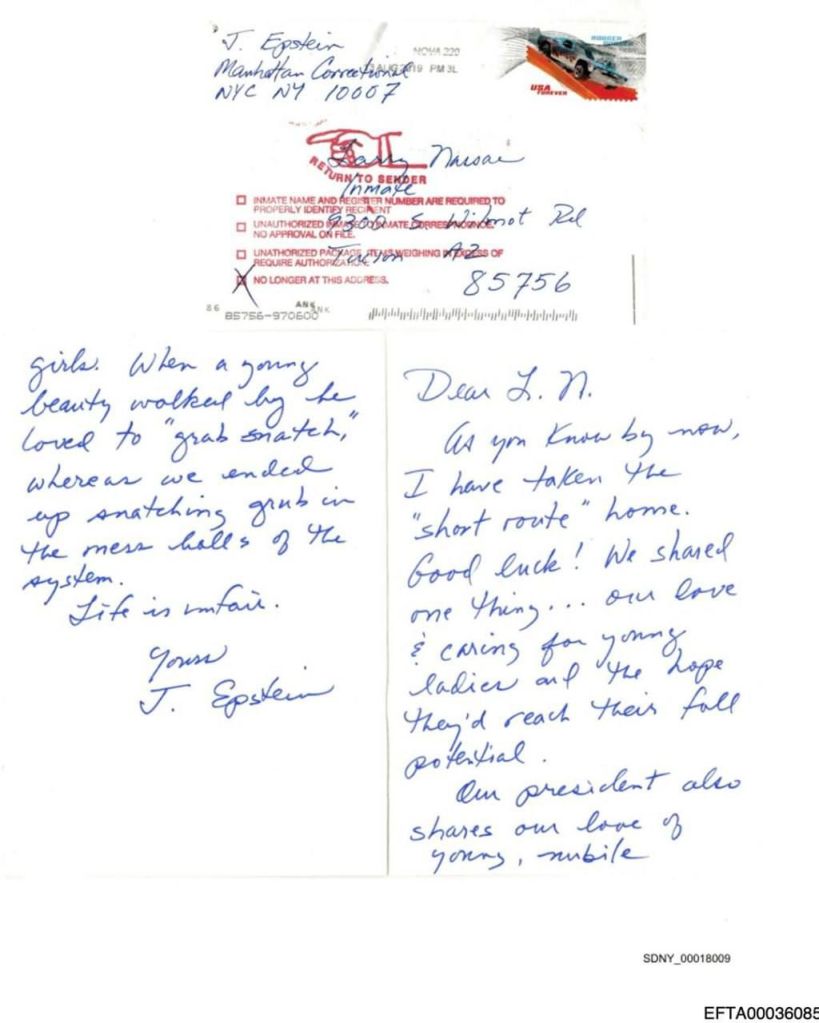 J. Epstein
Manhattan Correctional
NYC NY 10007
NOVA 220
AUG 2019 PM 3L
USA
FOREVER
Larry Nassar
RETURN TO SENDER
Inmate
9300 S. Wilmot Rd
Tucson AZ
85756
INMATE NAME AND REGISTER NUMBER ARE REQUIRED TO
PROPERLY IDENTIFY RECIPIENT
UNAUTHORIZED INMATE TO INMATE CORRESPONDENCE
NO APPROVAL ON FILE.
UNAUTHORIZED PACKAGE, ITEMS WEIGHING IN EXCESS OF
REQUIRE AUTHORIZATION.
NO LONGER AT THIS ADDRESS.
86
ANK
ANK
85756-970600
Dear L. N.
As you know by now,
I have taken the
"short route" home.
Good luck! We shared
one thing... our love
& caring for young
ladies and the hope
they'd reach their full
potential.
Our president also
shares our love of
young, nubile
girls. When a young
beauty walked by he
loved to "grab snatch,"
whereas we ended
up snatching grub in
the mess halls of the
system.
Life is unfair.
Yours
J. Epstein
SDNY_00018009
EFTA00036085